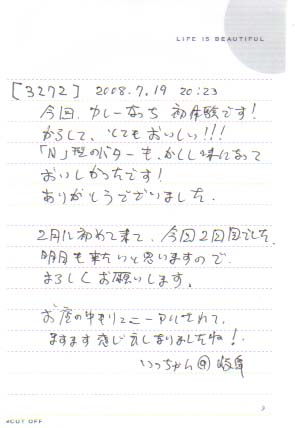 LIFE IS BEAUTIFUL
[3272] 2008.7.19 20:23
今回、カレーなっち 初体験です!
からくて、とてもおいしい!!!
「N」型のバターも、かくし味になって
おいしかったです!
ありがとうございました。
2月に初めて来て、今回2回目でした。
明日も来たいと思いますので、
よろしくお願いします。
お店の中もリニューアルされて、
ますます感じ良くなりましたね!
いっちゃん@岐阜
CUT OFF